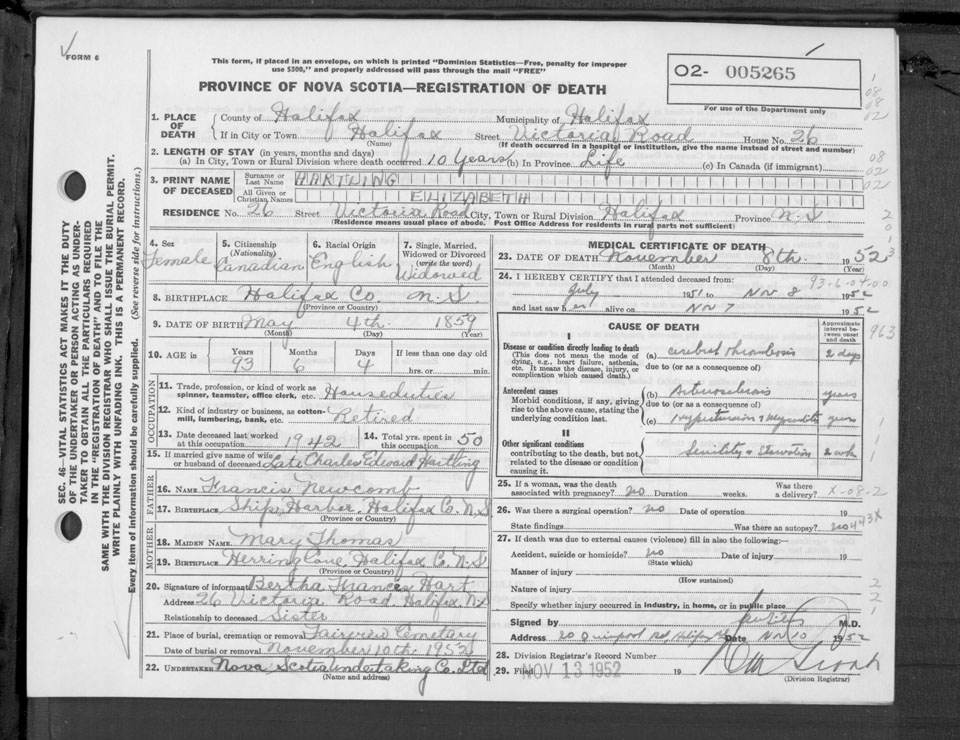 FORM 6
This form, if placed in an envelope, on which is printed "Dominion Statistics—Free, penalty for improper
use $300," and properly addressed will pass through the mail "FREE"
PROVINCE OF NOVA SCOTIA—REGISTRATION OF DEATH
O2- 005265
For use of the Department only
1. PLACE OF DEATH
County of Halifax Municipality of Halifax
If in City or Town Halifax Street Victoria Road House No. 26
(Name) (If death occurred in a hospital or institution, give the name instead of street and number)
2. LENGTH OF STAY (in years, months and days)
(a) In City, Town or Rural Division where death occurred 10 Years (b) In Province Life (c) In Canada (if immigrant)
3. PRINT NAME OF DECEASED
Surname or Last Name HARTLING
All Given or Christian Names ELIZABETH
RESIDENCE No. 26 Street Victoria Road City, Town or Rural Division Halifax Province N.S
(Residence means usual place of abode. Post Office Address for residents in rural parts not sufficient)
4. Sex Female
5. Citizenship (Nationality) Canadian
6. Racial Origin English
7. Single, Married, Widowed or Divorced (write the word) Widowed
8. BIRTHPLACE Halifax Co. N.S.
(Province or Country)
9. DATE OF BIRTH May 4th 1859
(Month) (Day) (Year)
10. AGE in Years 93 Months 6 Days 4 If less than one day old hrs. or min.
OCCUPATION
11. Trade, profession, or kind of work as spinner, teamster, office clerk, etc. Houseduties
12. Kind of industry or business, as cotton-mill, lumbering, bank, etc. Retired
13. Date deceased last worked at this occupation 1942
14. Total yrs. spent in this occupation 50
15. If married give name of wife or husband of deceased Late Charles Edward Hartling
FATHER
16. NAME Francis Newcomb
17. BIRTHPLACE Ship Harbor, Halifax Co. N.S
(Province or Country)
MOTHER
18. MAIDEN NAME Mary Thomas
19. BIRTHPLACE Herring Cove, Halifax Co. N.S
(Province or Country)
20. Signature of informant Bertha Frances Hart
Address 26 Victoria Road, Halifax, N.S
Relationship to deceased Sister
21. Place of burial, cremation or removal Fairview Cemetary
Date of burial or removal November 10th 1952
22. UNDERTAKER Nova Scotia Undertaking Co. Ltd
(Name and address)
MEDICAL CERTIFICATE OF DEATH
23. DATE OF DEATH November 8th 1952
(Month) (Day) (Year)
24. I HEREBY CERTIFY that I attended deceased from:
July 1951 to Nov 8 1952
and last saw her alive on Nov 7 1952
93-6-04-00
CAUSE OF DEATH
Approximate interval between onset and death
963
I
Disease or condition directly leading to death
(This does not mean the mode of dying, e.g., heart failure, asthenia, etc. It means the disease, injury, or complication which caused death.)
(a) cerebral thrombosis 2 days
due to (or as a consequence of)
Antecedent causes
Morbid conditions, if any, giving rise to the above cause, stating the underlying condition last.
(b) Arteriosclerosis years
due to (or as a consequence of)
(c) Hypertension & Myocarditis years
II
Other significant conditions
contributing to the death, but not related to the disease or condition causing it.
Senility & 2 wks
25. If a woman, was the death associated with pregnancy? no Duration weeks. Was there a delivery? X-08-2
26. Was there a surgical operation? no Date of operation 19
State findings Was there an autopsy? no 443X
27. If death was due to external causes (violence) fill in also the following:—
Accident, suicide or homicide? no Date of injury 19
(State which)
Manner of injury
(How sustained)
Nature of injury
Specify whether injury occurred in industry, in home, or in public place
Signed by M.D.
Address Halifax Date Nov 10 1952
28. Division Registrar's Record Number
29. Filed NOV 13 1952 19
(Division Registrar)
SEC. 46—VITAL STATISTICS ACT MAKES IT THE DUTY
OF THE UNDERTAKER OR PERSON ACTING AS UNDER-
TAKER TO OBTAIN ALL THE PARTICULARS REQUIRED
IN THE "REGISTRATION OF DEATH" AND TO FILE THE
SAME WITH THE DIVISION REGISTRAR WHO SHALL ISSUE THE BURIAL PERMIT.
WRITE PLAINLY WITH UNFADING INK. THIS IS A PERMANENT RECORD.
Every item of information should be carefully supplied. (See reverse side for instructions.)